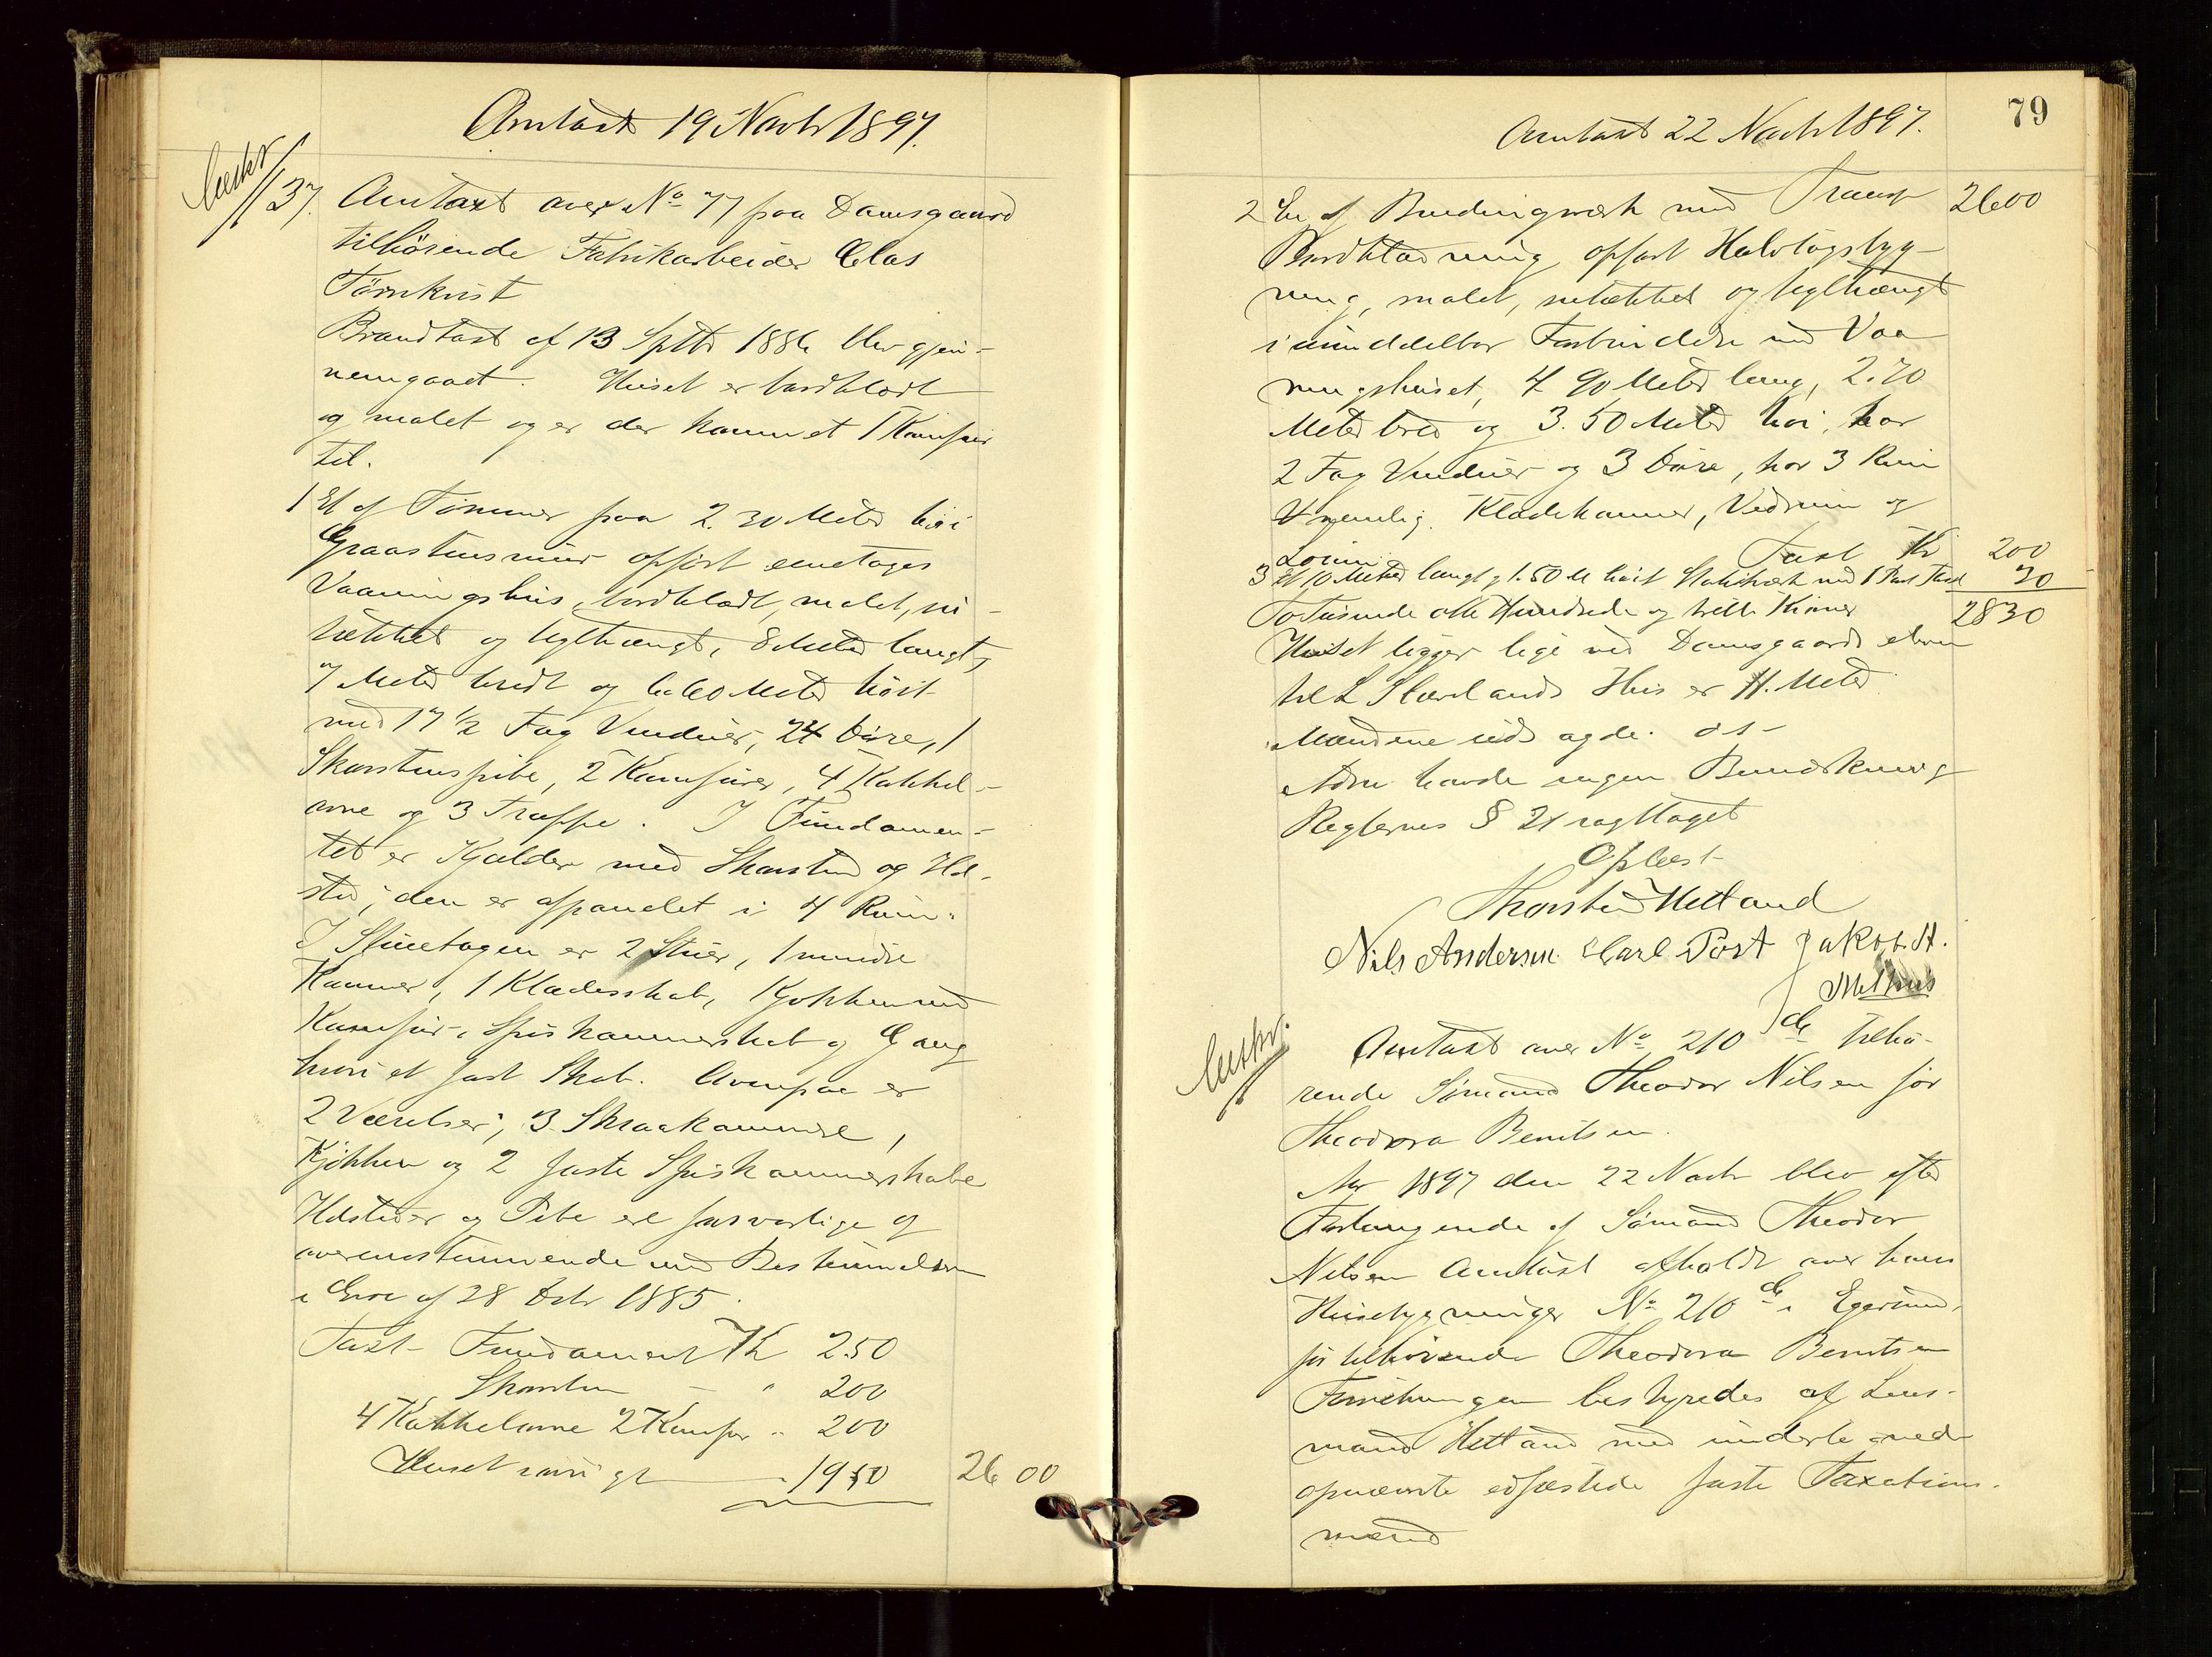 Omtaxt 19 Novbr 1897.
37. Omtaxt over No 77 paa Damsgaard
tilhörende Fabrikarbeider Clas
Törnkvist
Brandtaxt af 13 Septbr 1886 blev gjen-
nemgaaet. Huset er bordklædt
og malet og er der kommet 1 Komfur
til.
1 Et af Tömmer paa 2.30 Meter höi
Graastensmur opfört eenetages
Vaaningshus, bordklædt, malet, ni-
tækket og teglhængt, 8 Meter langt,
7 Meter bredt og 6.60 Meter höit
med 17 1/2 Fag Vinduer, 24 Döre, 1
Skorstenspibe, 2 Komfurer, 4 Kakkel-
ovne og 3 Trappe. I Fundamen-
tet er Kjælder med Skorsten og Ild-
sted; den er afpanelet i 4 Rum.
I Stueetagen er 2 Stuer, 1 mindre
Kammer, 1 Klædesskab, Kjøkken med
Komfur, Spiskammerskab og Gang
hvori et fast Skab. Ovenpaa er
2 Værelser, 3 Skraakammere,
Kjökken og 2 faste Spiskammerskabe
Ildsteder og Pibe ere forsvarlige og
overensstemmende med Bestemmelsen
i Lov af 28 Debr 1885.
Taxt Fundament Kr 250
Skorsten - " 200
4 Kakkelovne 2 Komfur " 200
Huset forövrigt 1950 2600
79
Omtaxt 22 Novbr 1897.
Transp 2600
2 En af Bindingværk med
Bordklædning opfört Halvtagsbyg-
ning, malet, nitækket og teglhængt
i umiddelbar Forbindelse med Vaa
ningshuset, 4.90 Meter lang, 2.70
Meter bred og 3.50 Meter höi, har
2 Fag Vinduer og 3 Döre, har 3 Rum
nemlig: Klædekammer, Vedrum og
Taxt Kr 200
3 Et 10 Meter langt og 1.50 M höit Stakitværk med 1 Port Taxt 30
To Tusinde otte Hundrede og tretti Kroner 2830
Huset ligger lige ved Damsgaards elven
til L Skevlands Hus er 11. Meter
Mændene
Ædru havde ingen Bemærkning
Reglernes § 21 iagttaget
Oplæst
Thorsten Hetland
Nils Andersen. Carl Post Jakob H.
Melhus
Omtaxt over No 210 de tilhö-
rende Sömand Theodor Nilsen för
Theodora Berntsen.
Aar 1897 den 22 Novbr blev efter
Forlangende af Sömand Theodor
Nilsen Omtaxt afholdt over hans
Husebygninger No 210 de i Egersund,
för tilhörende Theodora Berntsen
Forretningen bestyredes af Lens-
mand Hetland med undertegnede
opnævnte edfæstede faste Taxations-
mænd